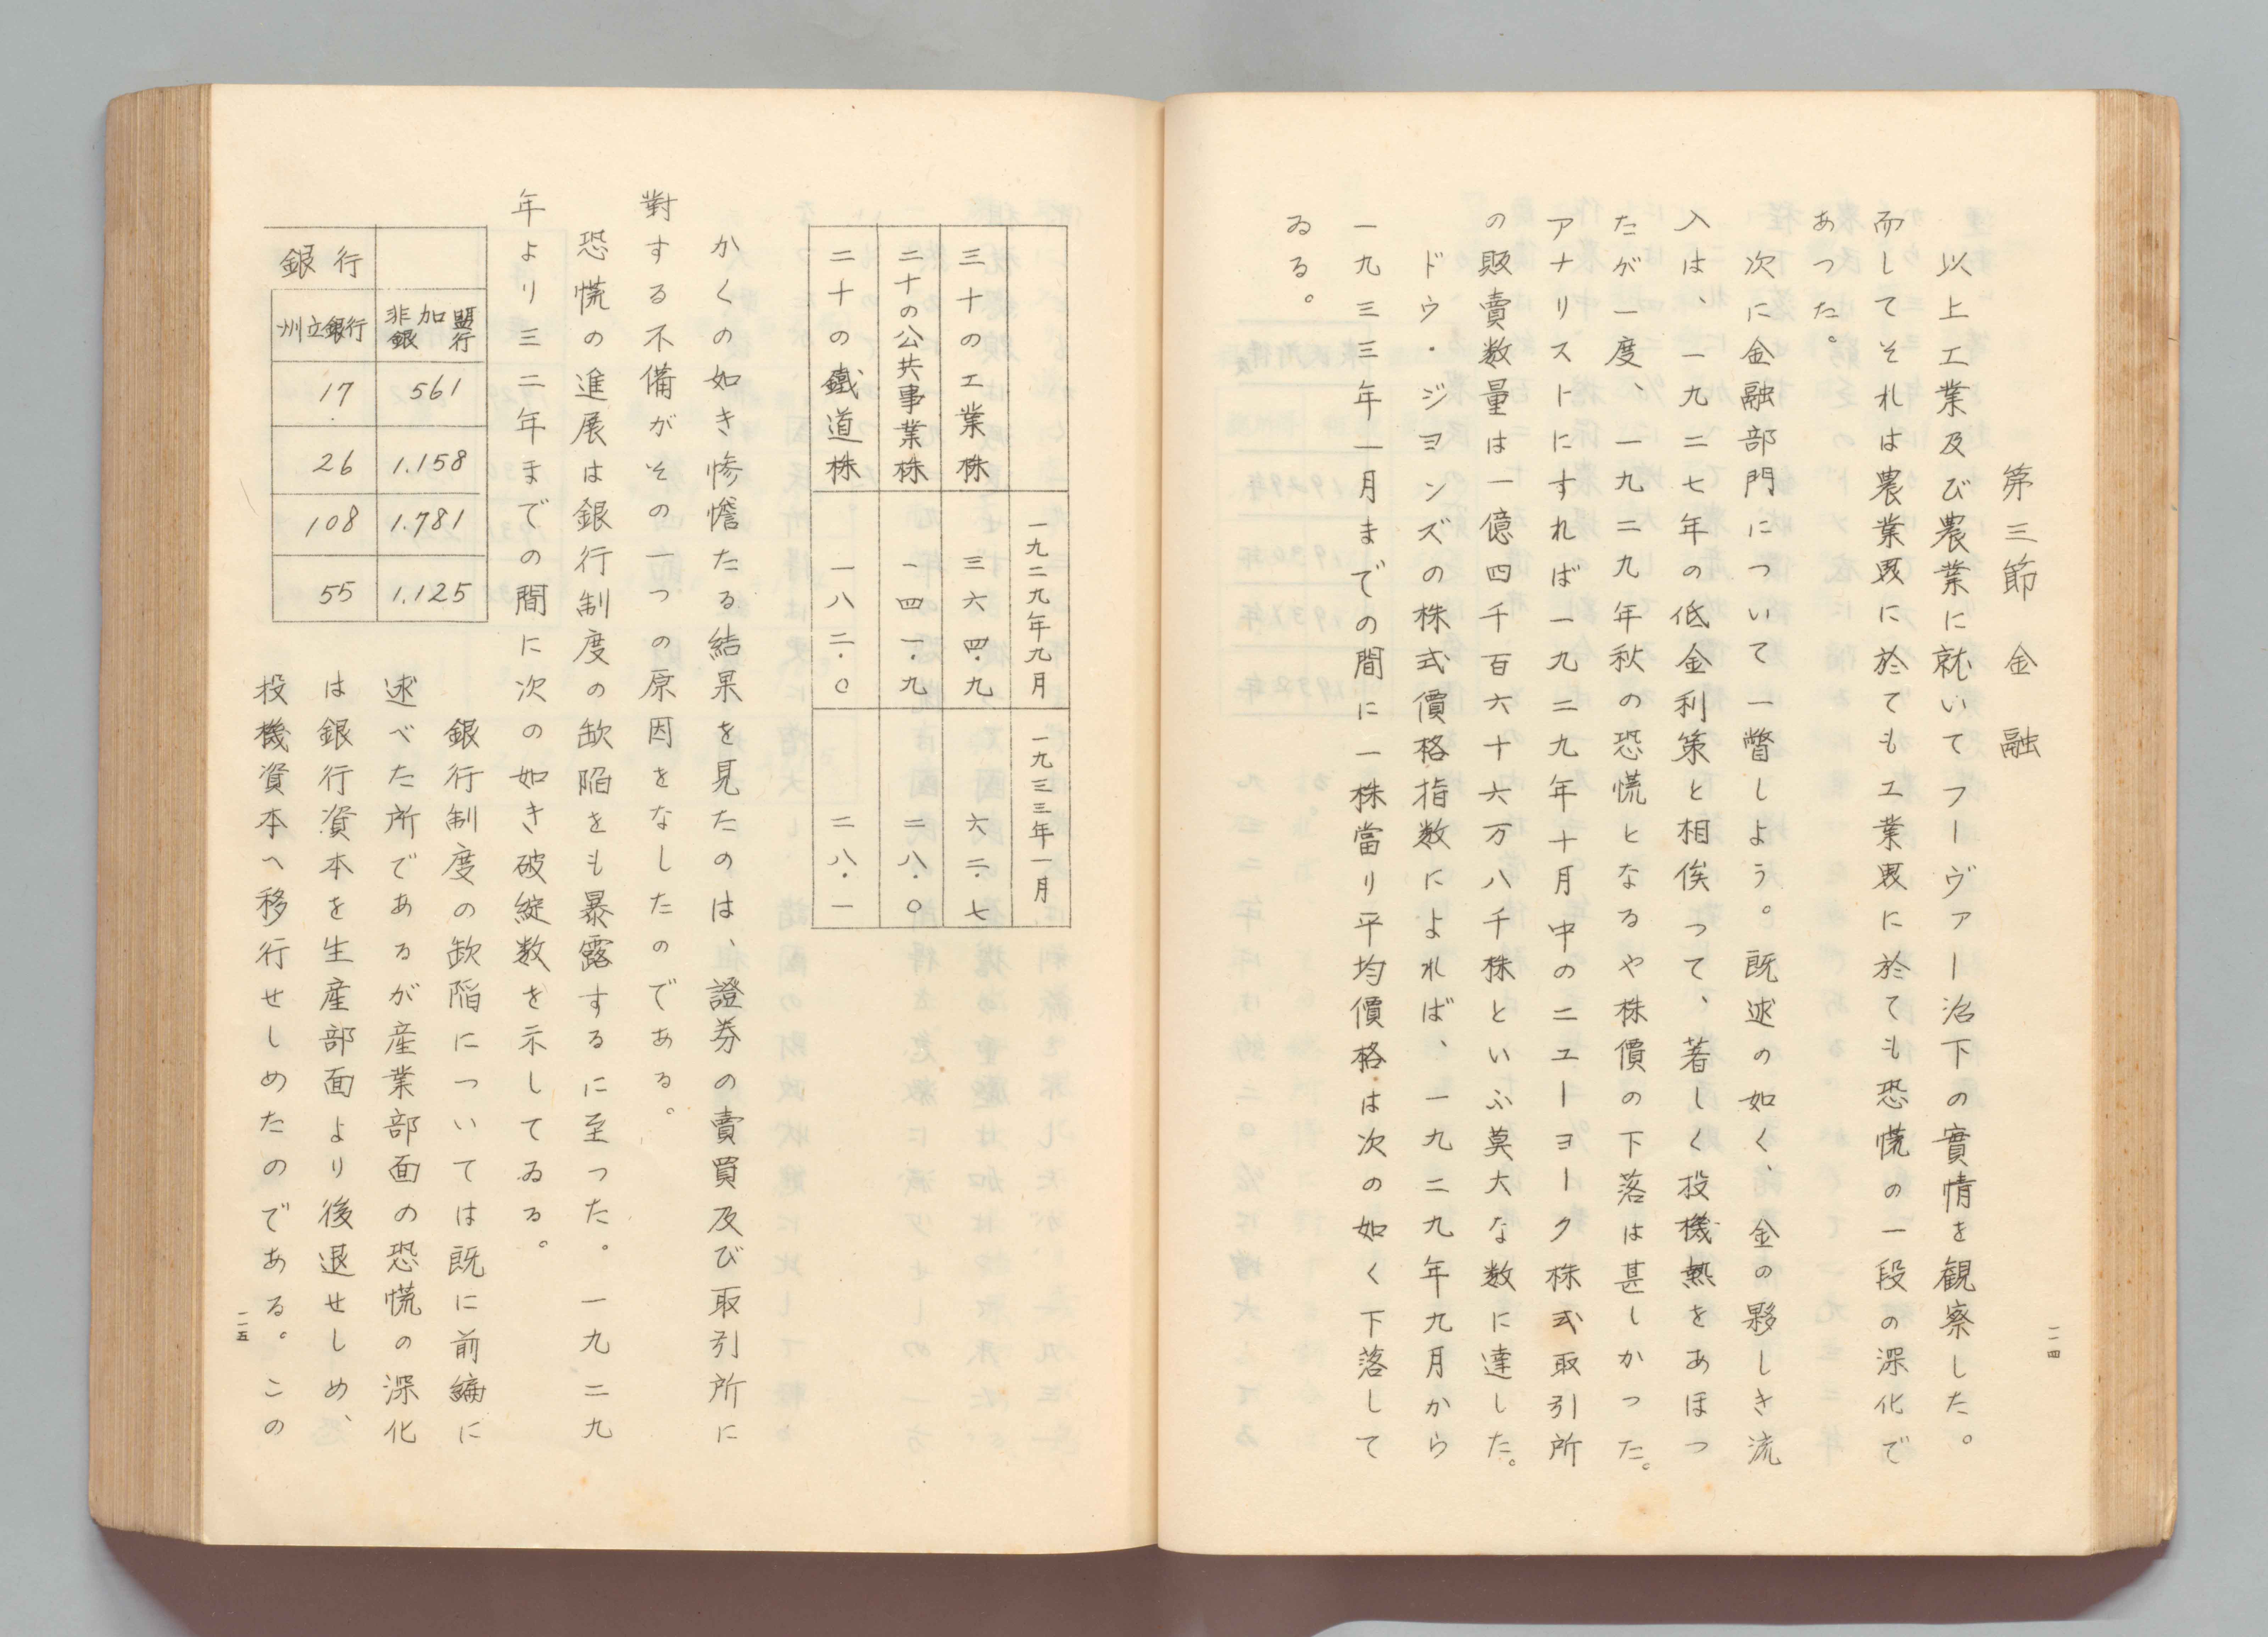 一一四
第三節 金融
以上工業及び農業に就いてフーヴァー治下の實情を観察した。
而してそれは農業界に於ても工業界に於ても恐慌の一段の深化で
あつた。
次に金融部門について一瞥しよう。既述の如く、金の夥しき流
入は、一九二七年の低金利策と相俟つて、著しく投機熱をあほつ
たが一度、一九二九年秋の恐慌となるや株價の下落は甚しかつた。
アナリストにすれば一九二九年十月中のニューヨーク株式取引所
の販賣数量は一億四千百六十六万八千株といふ莫大な数に達した。
ドウ・ジヨンズの株式價格指数によれば、一九二九年九月から
一九三三年一月までの間に一株當り平均價格は次の如く下落して
ゐる。
一九二九年九月 一九三三年一月
三十の工業株 三六四.九 六二.七
二十の公共事業株 一四一.九 二八.〇
二十の鐵道株 一八二.〇 二八.一
かくの如き惨憺たる結果を見たのは、證券の賣買及び取引所に
對する不備がその一つの原因をなしたのである。
恐慌の進展は銀行制度の缼陥をも暴露するに至つた。一九二九
年より三二年までの間に次の如き破綻数を示してゐる。
非加盟銀行 561 1.158 1.781 1.125
銀行 州立銀行 17 26 108 55
銀行制度の缼陥については既に前編に
述べた所であるが産業部面の恐慌の深化
は銀行資本を生産部面より後退せしめ、
投機資本へ移行せしめたのである。この
一一五